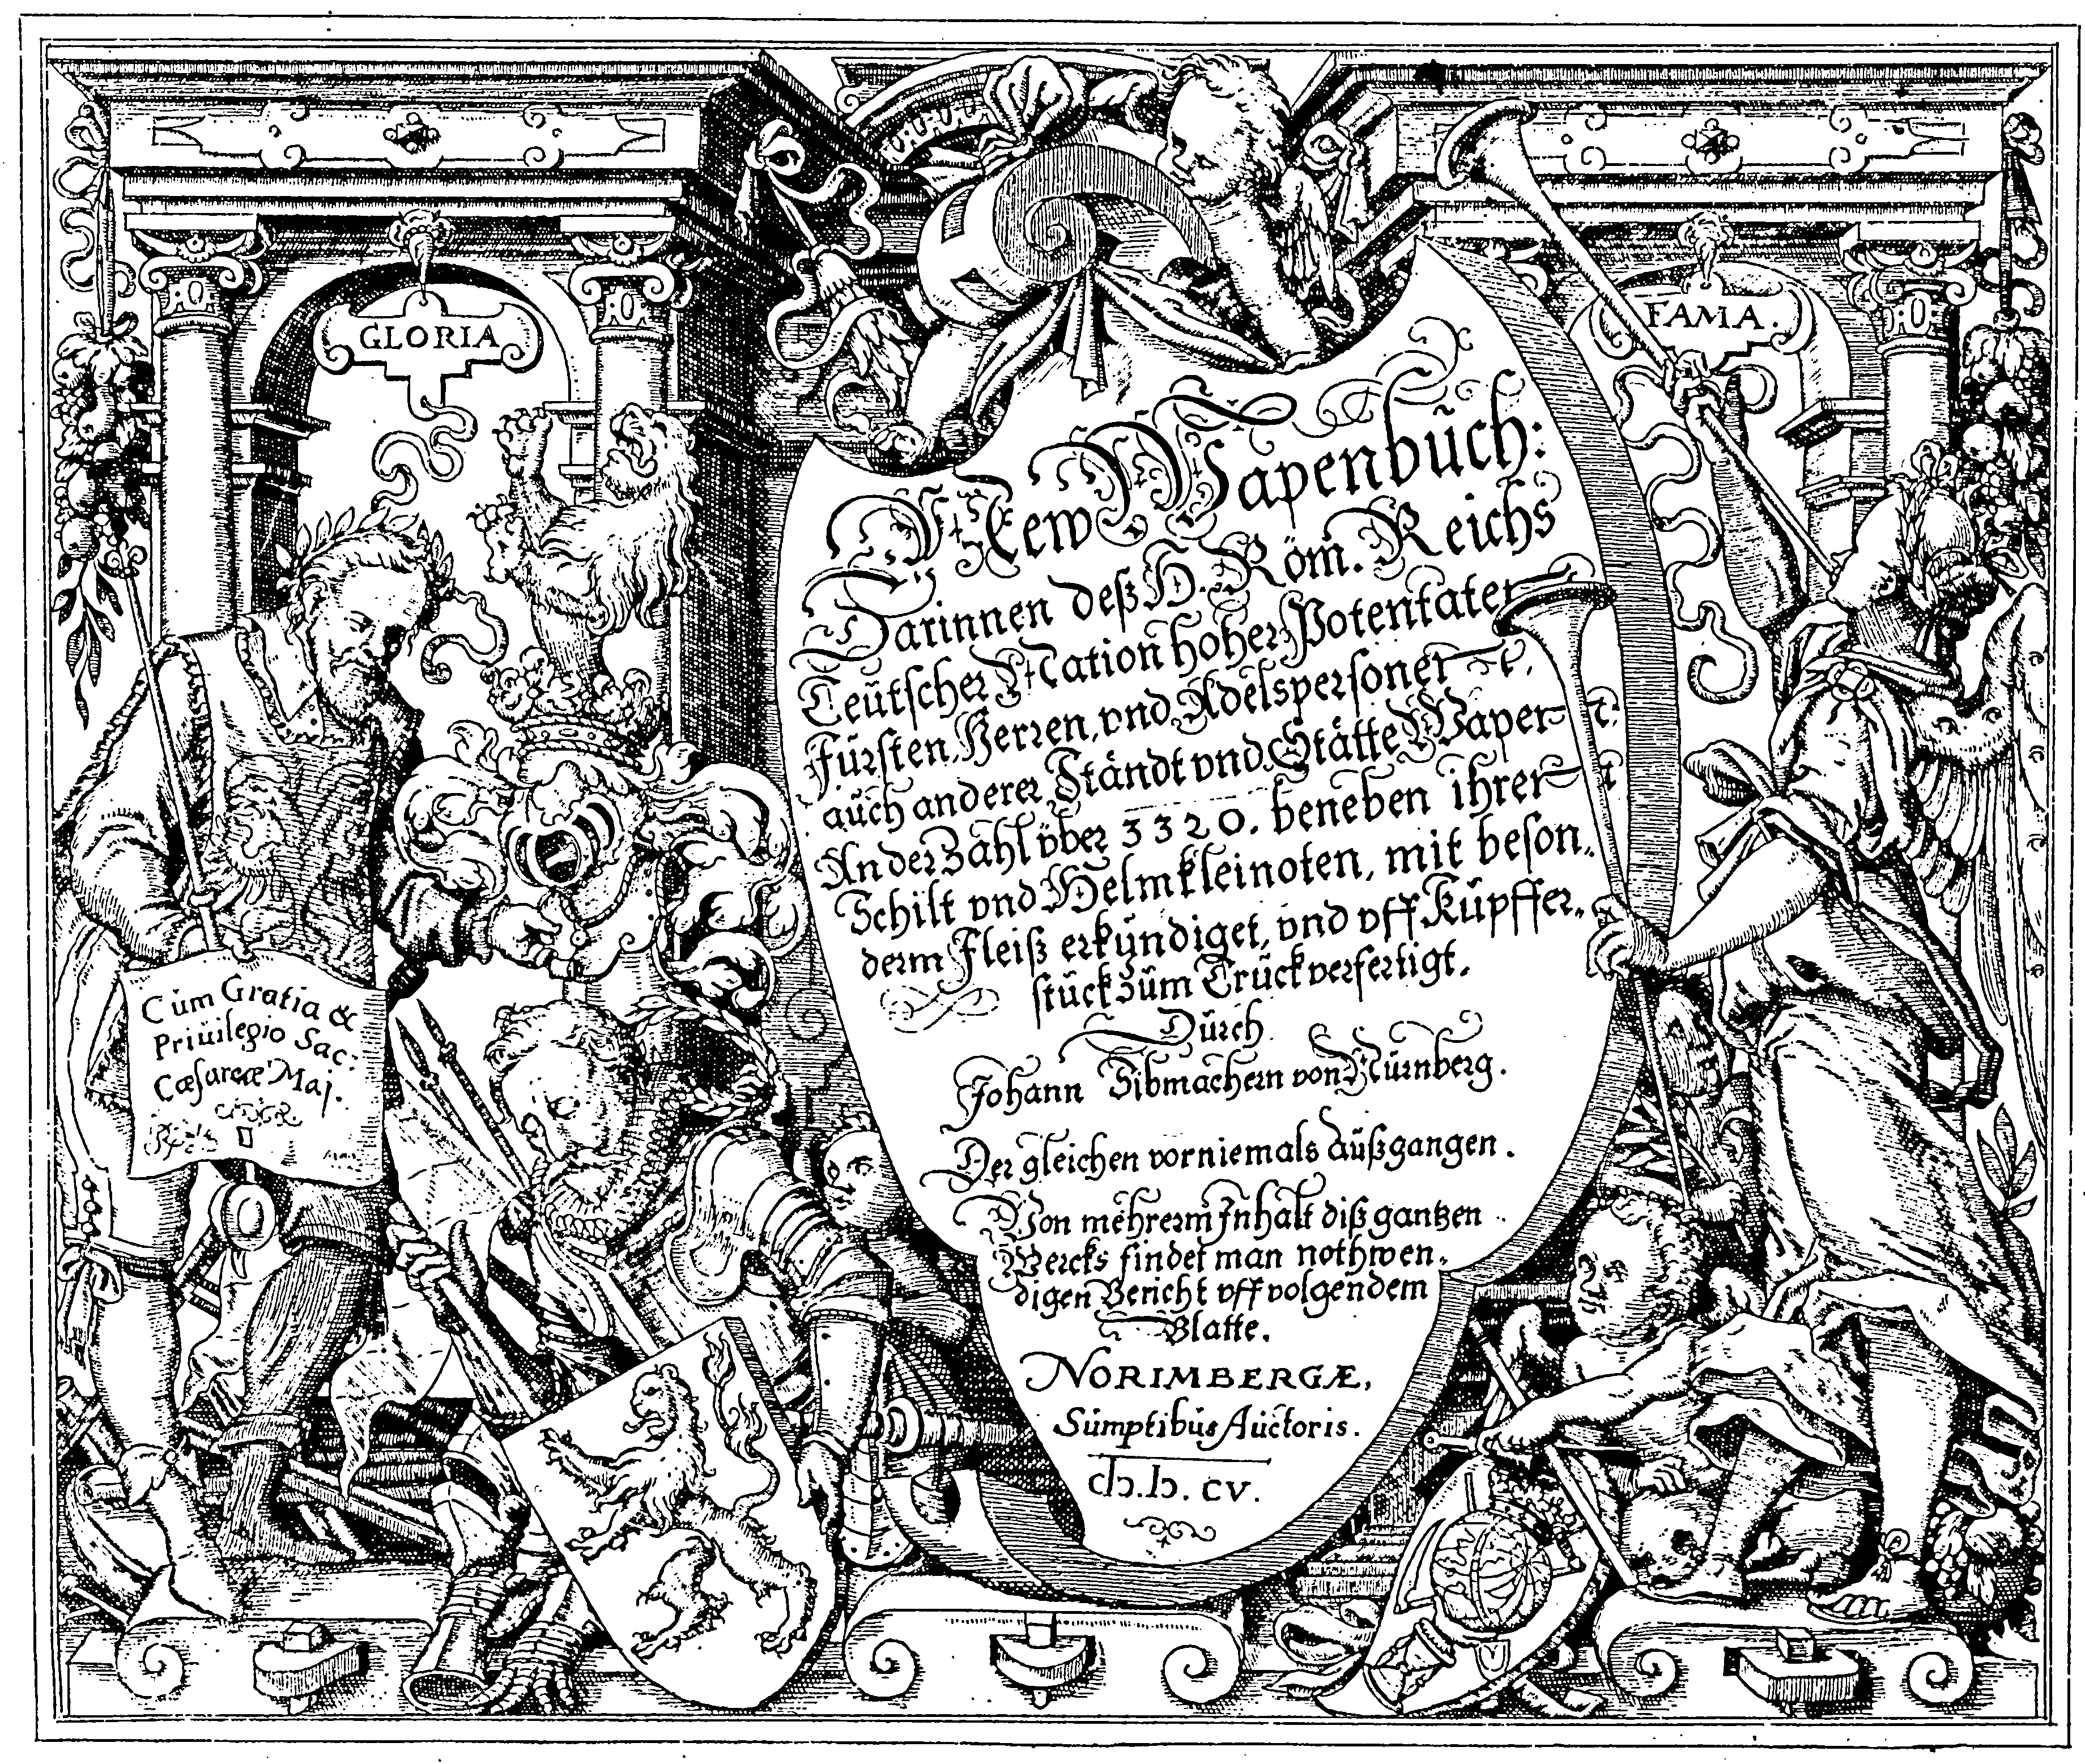 GLORIA
FAMA.
New Wapenbuch:
Darinnen deß H. Röm. Reichs
Teutscher Nation hoher Potentaten
Fürsten, Herren, vnd Adelspersonen
auch anderer Ständt vnd Stätte Wapen
An der Zahl vber 3320. beneben ihren
Schilt vnd Helmkleinoten, mit beson,
derm Fleiß erkundiget, vnd vff Kupffer,
stuck zum Truck verfertigt.
Durch
Johann Sibmachern von Nürnberg.
Der gleichen vorniemals außgangen.
Von mehrerm Inhalt diß gantzen
Wercks findet man nothwen,
digen Bericht vff volgendem
Blatte.
NORIMBERGÆ,
Sumptibus Auctoris.
cIɔ.Iɔ.CV.
Cum Gratia &
Priuilegio Sac:
Cæsareæ Maj.